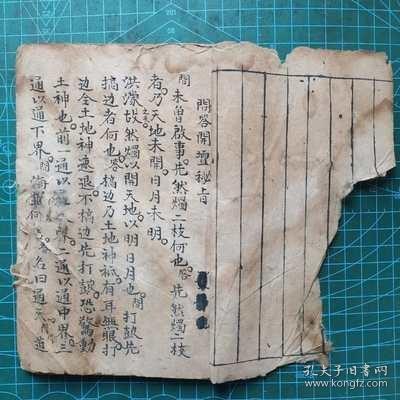 問答開壇秘旨
問未曾啟事先然燭二枝何也答先然燭二枝
者乃天地未開日月未明
洪濛故然燭以開天地以明日月也問打鼓先
搞边者何也答搞边乃土地神祇有耳無眼打
边令土地神速退不搞边先打鼓恐驚動
土神也前一通以 二通以通中界三
通以通下界問 海 何 答名曰通天 道
孔夫子旧书网
www.kongfz.com